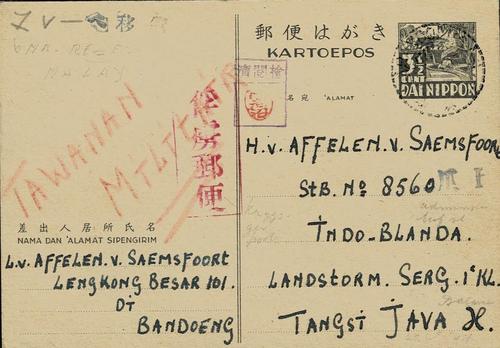 郵便はがき
KARTOEPOS
3½
CENT
DAI NIPPON
移
MALAY
TAWANAN
MILITAIR
檢閲濟
俘虜郵便
名宛 'ALAMAT
H.v. AFFELEN.v. SAEMSFOORT
STB. No 8560
INDO-BLANDA.
LANDSTORM. SERG. 1e KL.
TANGSI JAVA X.
差出人居所氏名
NAMA DAN 'ALAMAT SIPENGIRIM
L.v. AFFELEN.v. SAEMSFOORT
LENGKONG BESAR 101.
DT
BANDOENG